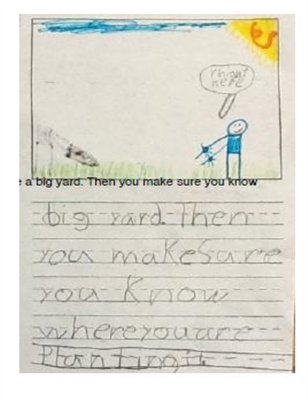 here
e a big yard. Then you make sure you know
big yard. Then
you makeSure
you Know
where you are